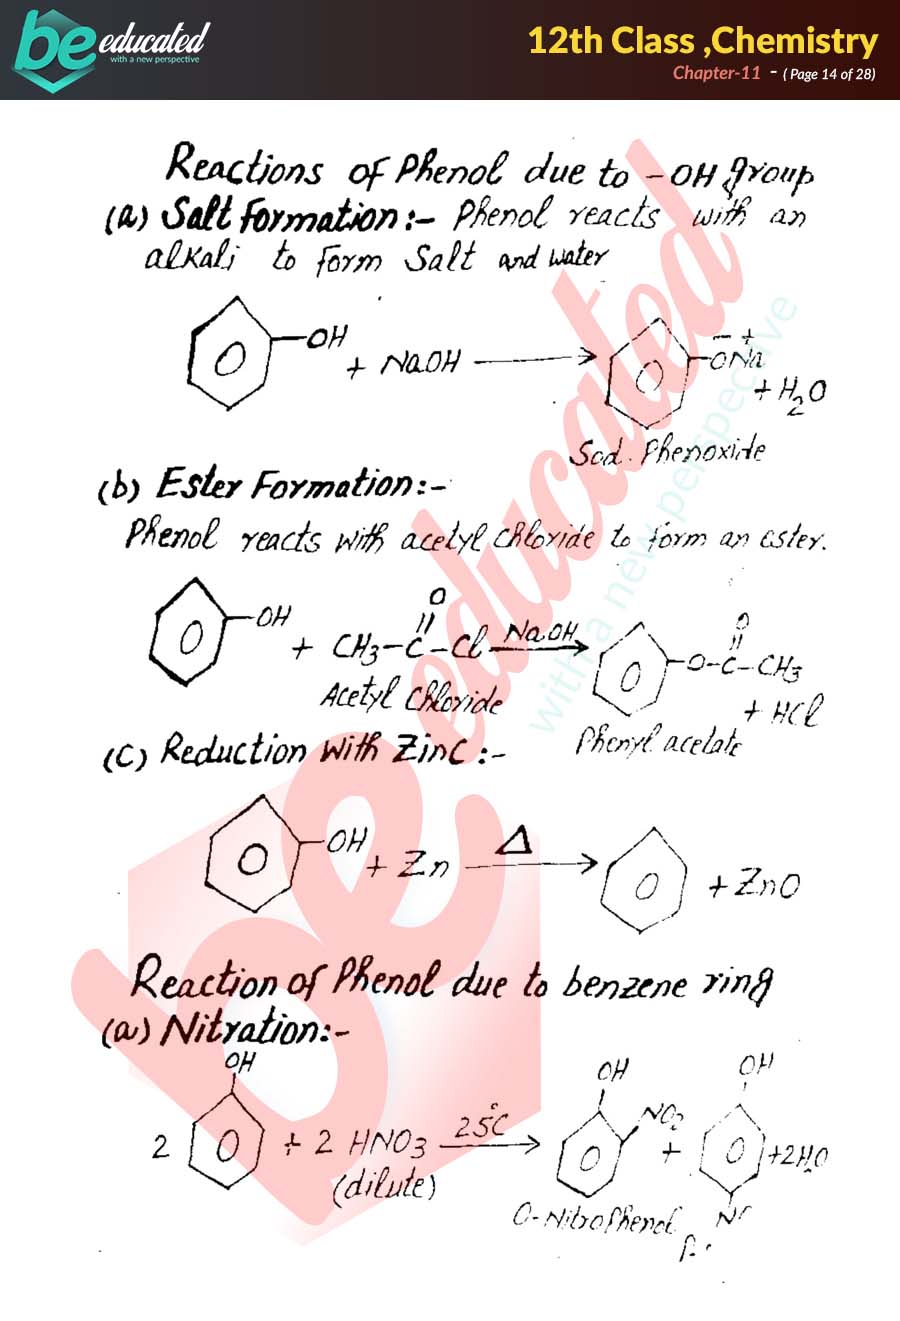 be educated
with a new perspective
12th Class ,Chemistry
Chapter-11 - ( Page 14 of 28)
Reactions of Phenol due to -OH group
(a) Salt Formation:- Phenol reacts with an
alkali to form Salt and water
OH + NaOH ⟶ ONa - + + H2O
Sod. Phenoxide
(b) Ester Formation:-
Phenol reacts with acetyl chloride to form an ester.
OH + CH3-C-Cl NaOH ⟶ O-C-CH3
O O
+ HCl
Acetyl Chloride
Phenyl acetate
(C) Reduction with Zinc:-
OH + Zn Δ ⟶ + ZnO
Reaction of Phenol due to benzene ring
(a) Nitration:-
OH OH OH
2 + 2 HNO3 25°C ⟶ NO2 + +2H2O
(dilute)
O-Nitrophenol
be educated
with a new perspective